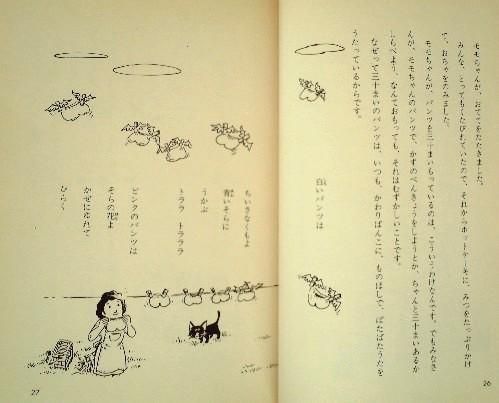 モモちゃんが、おててをたたきました。
みんな、とってもくたびれていたので、それからホットケーキに、みつをたっぷりかけ
て、おちゃをのみました。
モモちゃんが、パンツを三十まいもっているのは、こういうわけなんです。でもみなさ
んが、モモちゃんのパンツで、かずのべんきょうをしようとか、ちゃんと三十まいあるか
しらべよう、なんておもっても、それはむずかしいことです。
なぜって三十まいのパンツは、いつも、かわりばんこに、ものほしで、ぱたぱたうたを
うたっているからです。
白いパンツは
26
ちいさなくもよ
青いそらに
うかぶ
トララ　トララ
ピンクのパンツは
そらの花よ
かぜにゆれて
ひらく
27